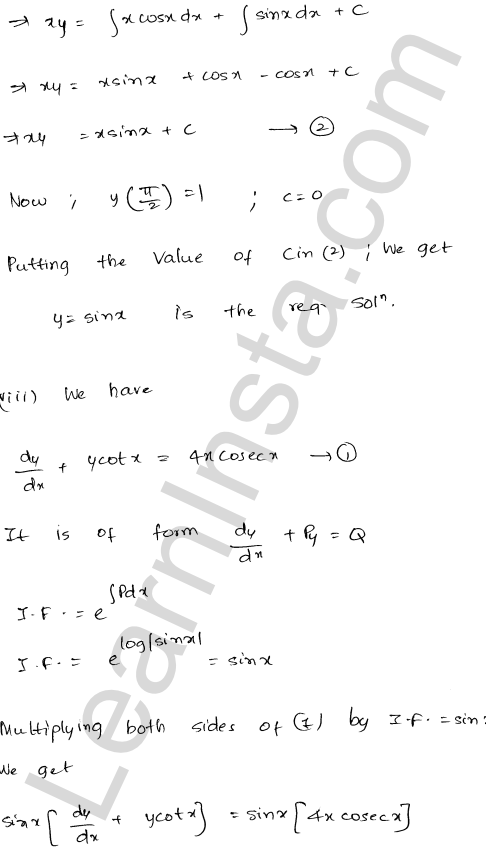 ⇒ xy = ∫ x cosx dx + ∫ sinx dx + C
⇒ xy = x sinx + cosx - cosx + C
⇒ xy = x sinx + C → ②
Now ; y(π/2) = 1 ; C = 0
Putting the Value of C in (2) ; We get
y = sinx is the req. Solⁿ.
(iii) We have
dy/dx + ycotx = 4x cosecx → ①
It is of form dy/dx + Py = Q
I.F. = e^∫Pdx
I.F. = e^log|sinx| = sinx
Multiplying both sides of (1) by I.F. = sin
We get
sinx [dy/dx + ycotx] = sinx [4x cosecx]
LearnInsta.com